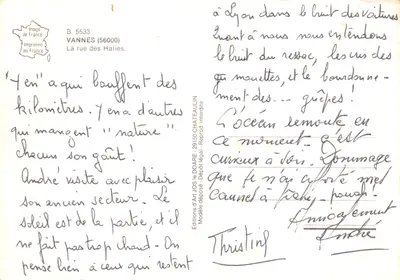 Image de France
Imprimé en France
B 5533
VANNES (56000)
La rue des Halles.
"Y en" a qui bouffent des
kilomètres. Y en a d'autres
qui mangent "nature"
chacun son goût!
André visite avec plaisir
son ancien secteur. Le
soleil est de la partie, et il
ne fait pas trop chaud. On
pense bien à ceux qui restent
Editions d'Art JOS le DOARÉ, 29150 CHATEAULIN
Modèle déposé - Dépôt légal - Reprod. interdite
à Lyon dans le bruit des voitures
Quant à nous nous entendons
le bruit du ressac, les cris des
mouettes, et le bourdonne-
ment des... guêpes!
L'océan remonte en
ce moment. c'est
curieux à voir. Dommage
que je n'ai apporté mon
carnet à
Amicalement
Christine
André